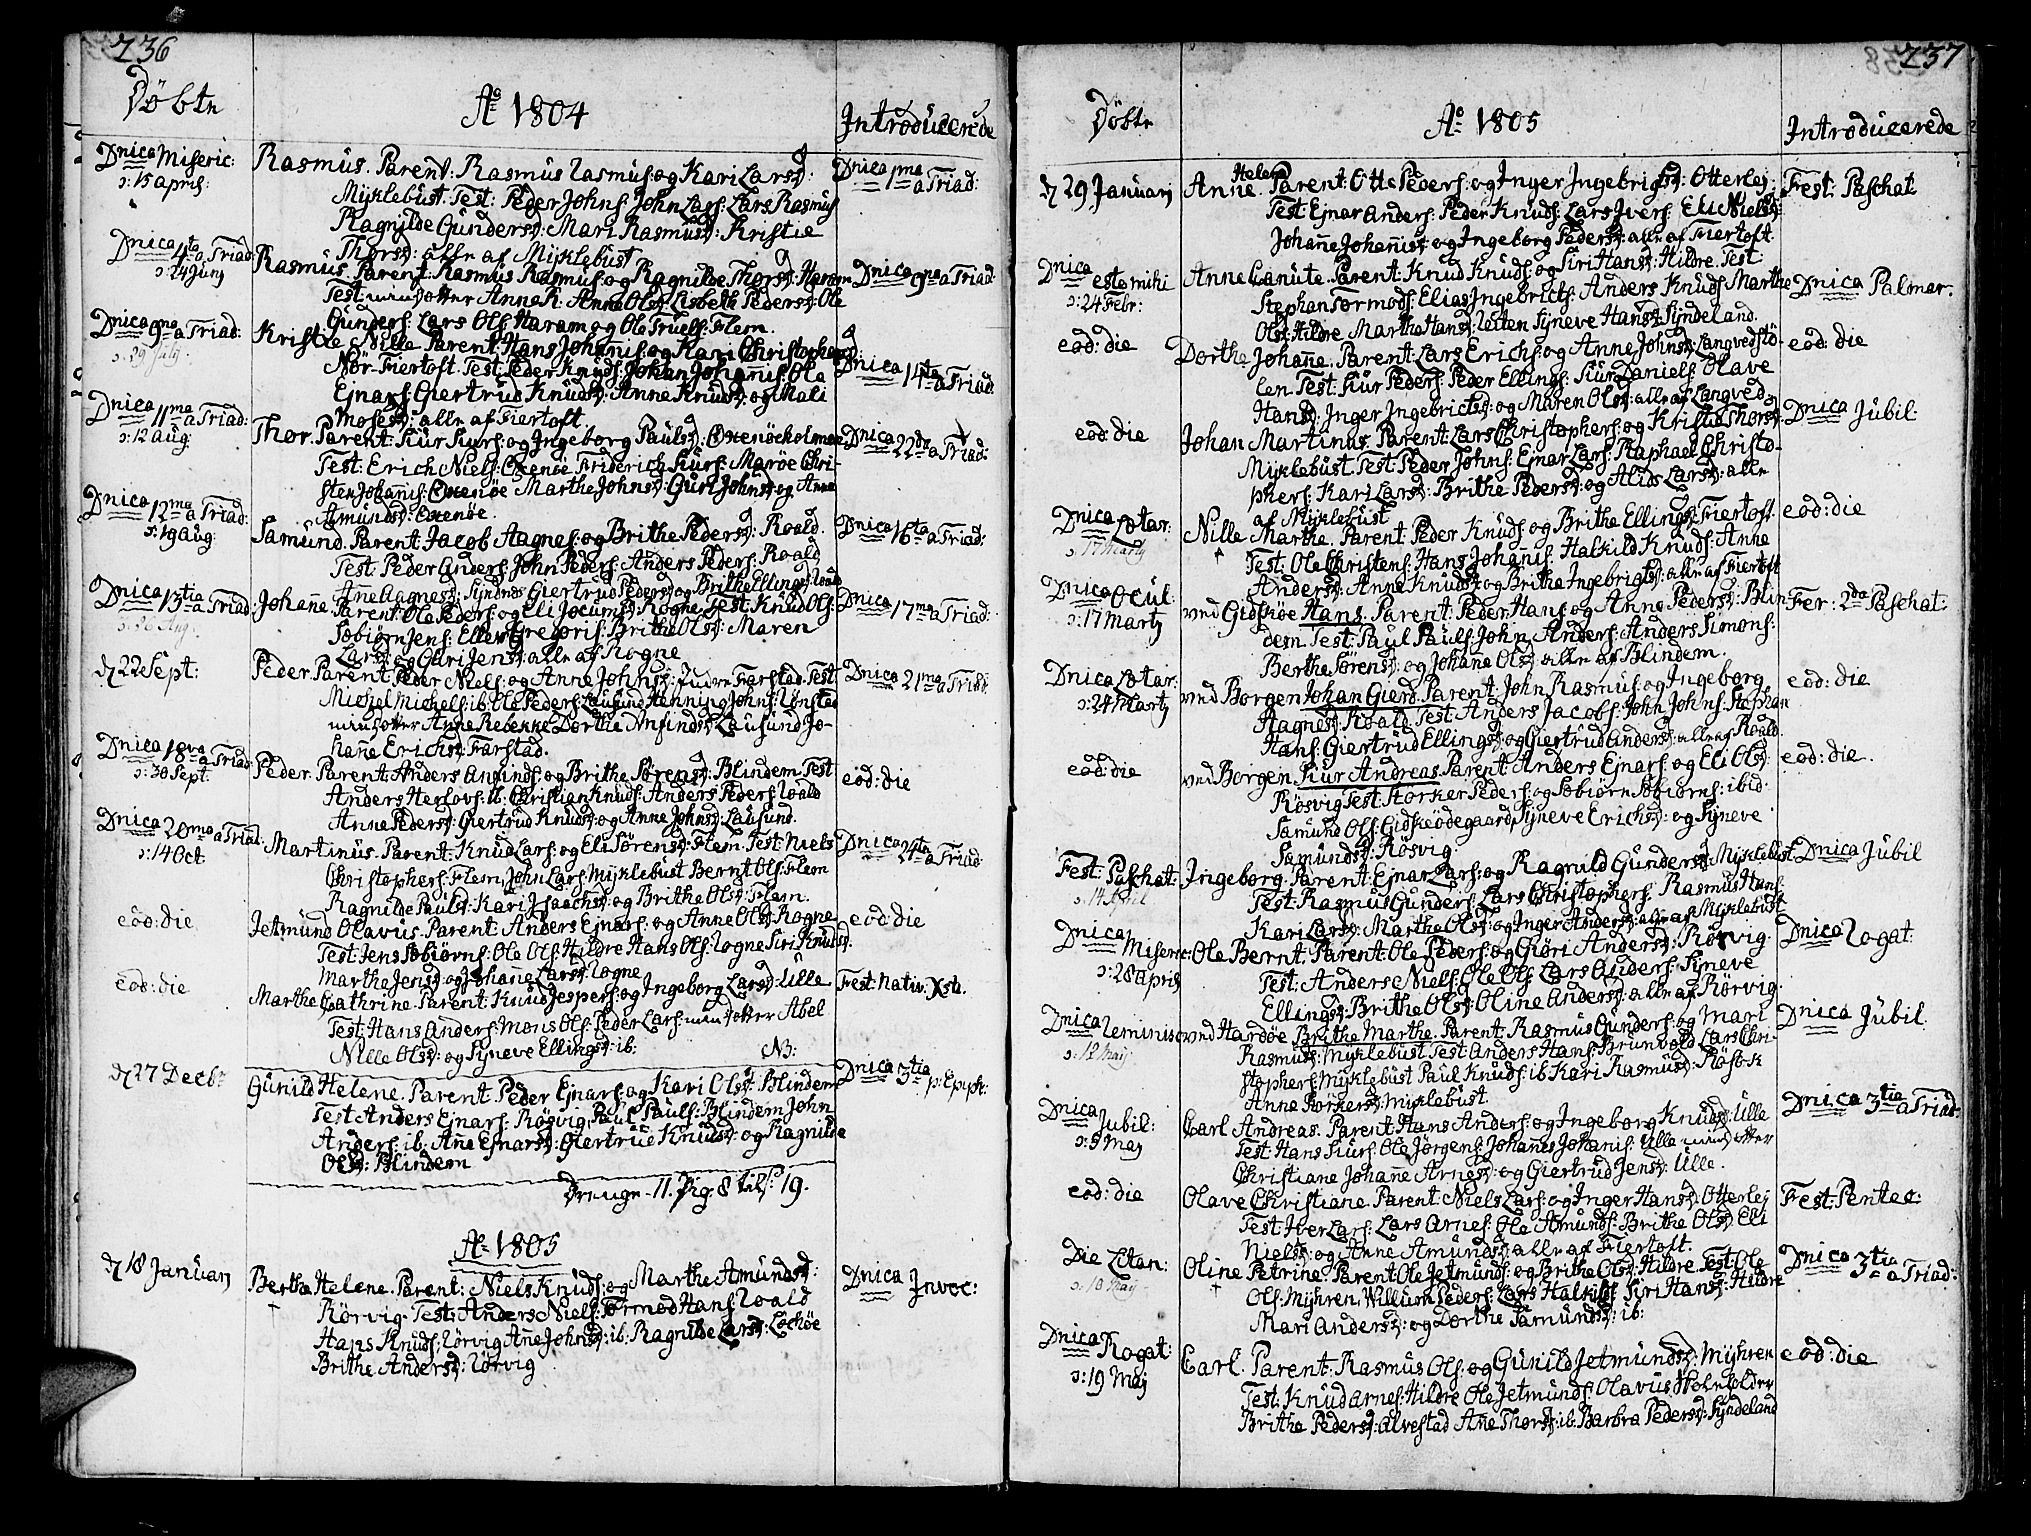 236
Døbte
Ao 1804
Introducerede
Dnica Miseric:
ɔ: 15 April:
Rasmus. Parent: Rasmus Rasmus: og Kari Larsd:
Myklebust. Test: Peder Johns: John Lars: Lars Rasmus
Ragnilde Gundersd: Mari Rasmusd: Kristie
Thorsd: alle af Myklebust
Dnica 1ma a Triad:
Dnica 4ta a Triad:
ɔ: 24 Juny
Rasmus. Parent: Rasmus Rasmus: og Ragnilde Thorsd: Haram
Test: min Dotter Anne R: Anne Olsd: Lisbeth Pedersd: Ole
Gunders: Lars Ols: Haram og Ole Truels: Flem.
Dnica 9na a Triad:
Dnica 9na a Triad:
ɔ: 29 July
Kristie Nille Parent: Hans Johannis: og Kari Christophersd:
Nør-Fiertoft. Test: Peder Knuds: Johan Johannis: Ole
Ejnars: Giertrud Knudsd: Anne Knudsd: og Mali
Mosesd: alle af Fiertoft.
Dnica 14ta a Triad:
Dnica 11ma a Triad:
ɔ: 12 Aug:
Thor. Parent: Siur Siurs: og Ingeborg Paulsd: Oxenøeholmen
Test: Erich Niels: Oxenøe Friderich Siurs: Marøe Chri-
sten Johannis: Oxenøe Marthe Johnsd: Guri Johnsd: og Anne
Amundsd: Oxenøe.
Dnica 22da a Triad:
Dnica 12ma a Triad:
ɔ: 19 Aug:
Samund. Parent: Jacob Hagnes: og Brithe Pedersd: Roald.
Test: Peder Anders: John Peders: Anders Peders: Roald
Ane Hagnesd: Syndnes Giertrud Pedersd: og Brithe Ellingsd: Roald
Dnica 16ta a Triad:
Dnica 13tia a Triad:
ɔ: 26 Aug:
Johanne. Parent: Ole Peders: og Eli Jocumsd: Rogne Test: Knud Ols:
Søbiørn Jens: Elles Gregoris: Brithe Olsd: Maren
Larsd: og Guri Jensd: alle af Rogne
Dnica 17ma a Triad:
d 22 Sept:
Peder. Parent: Peder Niels: og Anne Johnsd: Judre Farstad. Test:
Michel Michels: ib: Ole Peders: Lausund Henning Johns: Lønstad
min Dotter Anne Rebekke Dorthe Arnfindsd: Lausund Jo-
hanne Erichsd: Farstad.
Dnica 21ma a Triad:
Dnica 18va a Triad:
ɔ: 30 Sept:
Peder. Parent: Anders Amunds: og Brithe Sørensd: Blindem Test:
Anders Herlovs: ib: Christian Knuds: Anders Peders: Roald
Anne Pedersd: Giertrud Knudsd: og Anne Johnsd: Lausund.
eod: die
Dnica 20ma a Triad:
ɔ: 14 Oct.
Martinus. Parent: Knud Lars: og Eli Sørensd: Flem. Test: Niels
Christophers: Flem, John Lars: Myklebust Bernt Ols: Flem
Ragnilde Paulsd: Kari Isaachsd: og Brithe Olsd: Flem.
Dnica 24ta a Triad:
eod: die
Jetmund Olavus. Parent: Anders Ejnars: og Anne Olsd: Rogne
Test: Jens Sobiørns: Ole Ols: Hildre Hans Ols: Rogne Siri Knudsd:
Marthe Jensd: og Johanne Larsd: Rogne
eod: die
eod: die
Marthe Cathrine. Parent: Knud Jespers: og Ingeborg Larsd: Ulle
Test: Hans Anders: Mons Ols: Peder Lars: min Dotter Abel
Nille Olsd: og Synneve Ellingsd: ib:
NB:
Fest: Nativ: Xsti.
d 27 Decbr
Gunild Helene. Parent: Peder Ejnars: og Kari Olsd: Blindem
Test: Anders Ejnars: Røsvig, Paul Pauls: Blindem John
Anders: ib: Ane Ejnarsd: Giertrue Knudsd: og Ragnilde
Olsd: Blindem
Dnica 3tia p: Epiph:
Drenge 11. Pig: 8 tils: 19.
Ao 1805
d 18 Januarj
Berthe Helene. Parent: Niels Knuds: og Marthe Amundsd:
Rørvig. Test: Anders Niels: Tormod Hans: Roald
Hans Knuds: Rørvig Anne Johnsd: ib: Ragnilde Larsd: Lochøe
Brithe Andersd: Rørvig
Dnica Invoc:
237
Døbte
Ao 1805
Introducerede
d 29 Januarj
Helene
Anne. Parent: Otte Peders: og Inger Ingebrigtsd: Otterlej:
Test: Ejnar Anders: Peder Knuds: Lars Ivers: Eli Nielsd:
Johanne Johannisd: og Ingeborg Pedersd: alle af Fiertoft.
Fest: Paschat:
Dnica esto mihi
ɔ: 24 Febr:
Anne Canute. Parent: Knud Knuds: og Siri Hansd: Hildre. Test:
Stephan Tormods: Elias Ingebricts: Anders Knuds: Marthe
Olsd: Hildre Marthe Hansd: Leiten Syneve Hansd: Syndeland.
Dnica Palmar.
eod: die
Dorthe Johanne. Parent: Lars Erichs: og Anne Johnsd: Langvedstø-
len. Test: Siur Peders: Peder Ellings: Siur Daniels: Olave
Hansd: Inger Ingebrictsd: og Maren Olsd: alle af Langved
eod: die
eod: die
Johan Martinus. Parent: Lars Christophers: og Kristie Thorsd:
Myklebust. Test: Peder Johns: Ejnar Lars: Raphael Christo-
phers: Kari Larsd: Brithe Pedersd: og Alids Larsd: alle
af Myklebust
Dnica Jubil:
Dnica Lætar:
ɔ: 17 Marty
Nille Marthe. Parent: Peder Knuds: og Brithe Ellingsd: Fiertoft
Test: Ole Christens: Hans Johannis: Halkild Knuds: Anne
Andersd: Anne Knudsd: og Brithe Ingebrigtsd: alle af Fiertoft
eod: die
Dnica Ocul:
ɔ: 17 Marty
ved Gidskøe Hans. Parent: Peder Hans: og Anne Pedersd: Blin-
dem. Test: Paul Pauls: John Anders: Anders Simons:
Berthe Sørensd: og Johane Olsd: alle af Blindem.
Fer: 2da Paschat:
Dnica Lætar:
ɔ: 24 Marty
ved Borgen Johan Gierd. Parent: John Rasmus: og Ingeborg
Hagnesd: Roald Test: Anders Jacobs: John Johns: Stephan
Hans: Giertrud Ellingsd: og Giertrud Andersd: alle af Roald.
eod: die
eod: die
ved Borgen Siur Andreas. Parent: Anders Ejnars: og Eli Olsd:
Røsvig Test: Storker Peders: og Sobiørn Sobiørns: ibid:
Samund Ols: Gidskeødegaard, Syneve Erichsd: og Syneve
Samundsd: Røsvig
eod: die.
Fest: Paschat:
ɔ: 14 April
Ingeborg. Parent: Ejnar Lars: og Ragnild Gundersd: Myklebust
Test: Rasmus Gunders: Lars Christophers: Rasmus Hans:
Kari Larsd: Marthe Olsd: og Inger Andersd: alle af Myklebust
Dnica Jubil
Dnica Miseric:
ɔ: 28 April
Ole Bernt. Parent: Ole Peders: og Giøri Andersd: Rørvig.
Test: Anders Niels: Ole Ols: Lars Anders: Syneve
Ellingsd: Brithe Olsd: Oline Andersd: alle af Rørvig.
Dnica Rogat:
Dnica Reminisc
ɔ: 12 Maj
ved Harøe Brithe Marthe. Parent: Rasmus Gunders: og Mari
Rasmusd: Myklebust Test: Anders Hans: Brunvold Lars Chri-
stophers: Myklebust Paul Knuds: ib: Kari Rasmusd: Røsok
Anne Storkersd: Myklebust.
Dnica Jubil
Dnica Jubil:
ɔ: 5 May
Carl Andreas. Parent: Hans Anders: og Ingeborg Knudsd: Ulle
Test: Hans Siurs: Ole Jørgens: Johannes Johanis: Ulle min Dotter
Christiane Johanne Arnesd: og Giertrud Jensd: Ulle.
Dnica 3tia a Triad:
eod: die
Olave Christiane. Parent: Niels Lars: og Inger Hansd: Otterlej
Test: Iver Lars: Lars Arnes: Ole Amunds: Brithe Olsd: Eli
Nielsd: og Anne Amundsd: alle af Fiertoft.
Fest: Pentec:
Die Litan:
ɔ: 10 Maj
Oline Petrine. Parent: Ole Jetmunds: og Brithe Olsd: Hildre. Test: Ole
Ols: Myhren, Willum Peders: Lars Halkilds: Siri Hansd: Hildre
Mari Andersd: og Dorthe Samundsd: ib:
Dnica 3tia a Triad:
Dnica Rogat:
ɔ: 19 Maj
Carl. Parent: Rasmus Ols: og Gunild Jetmundsd: Myhren
Test: Knud Arnes: Hildre Ole Jetmunds: Olavus
Brithe Pedersd: Alvestad Ane Thorsd: ib: Barbra Pedersd: Syndeland
eod: die